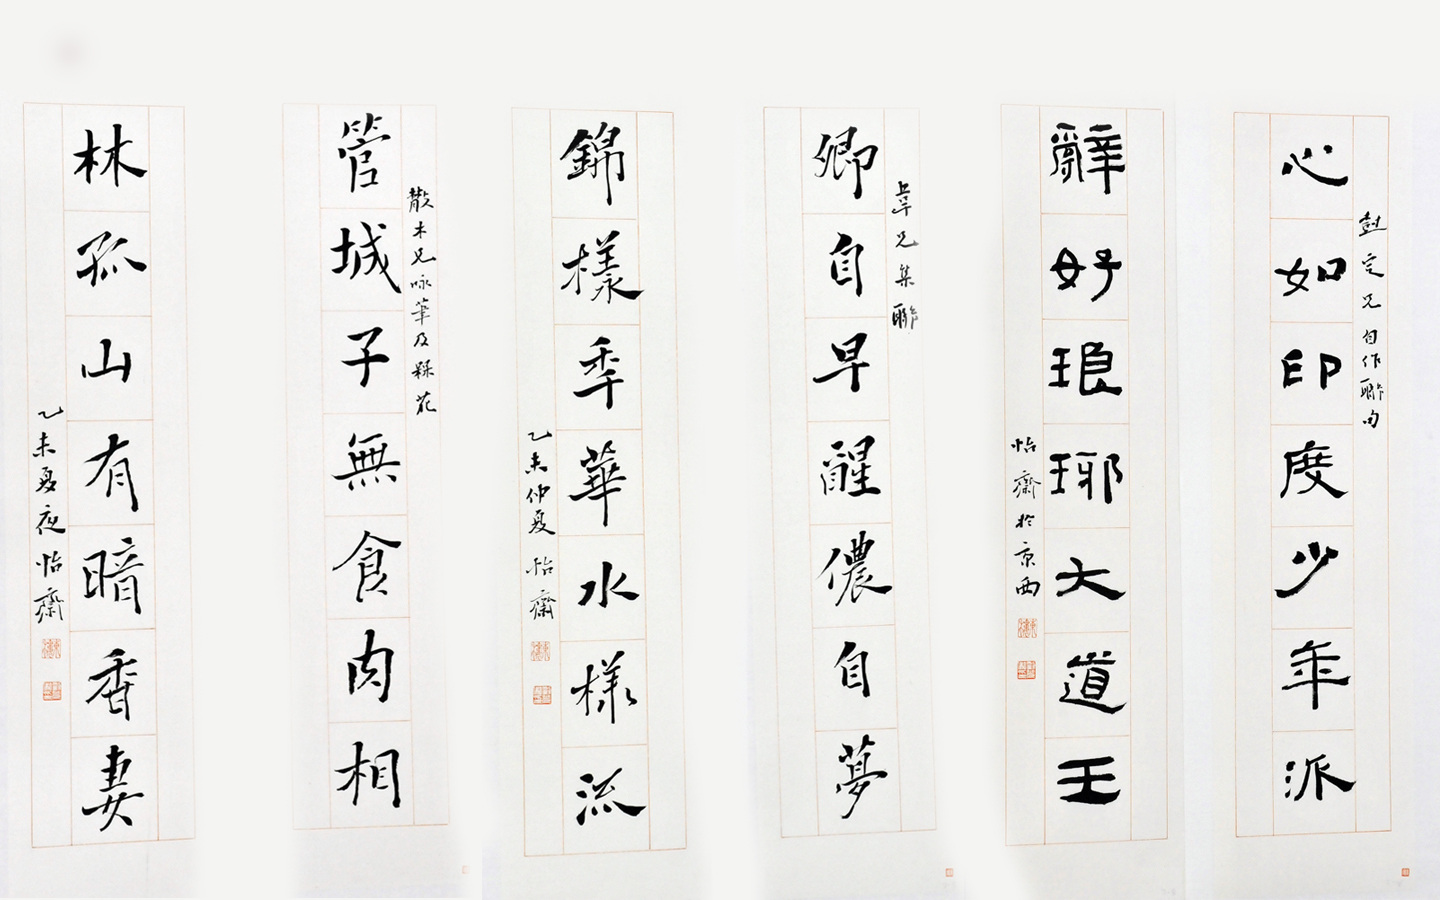 定兄自作聯句
心如印度少年派
辭好琅琊大道王
怡齋於京西
兄集聯
卿自早醒儂自夢
錦樣秊華水樣流
乙未仲夏 怡齋
散木兄咏筆及槑花
管城子無食肉相
林孤山有暗香妻
乙未夏夜怡齋